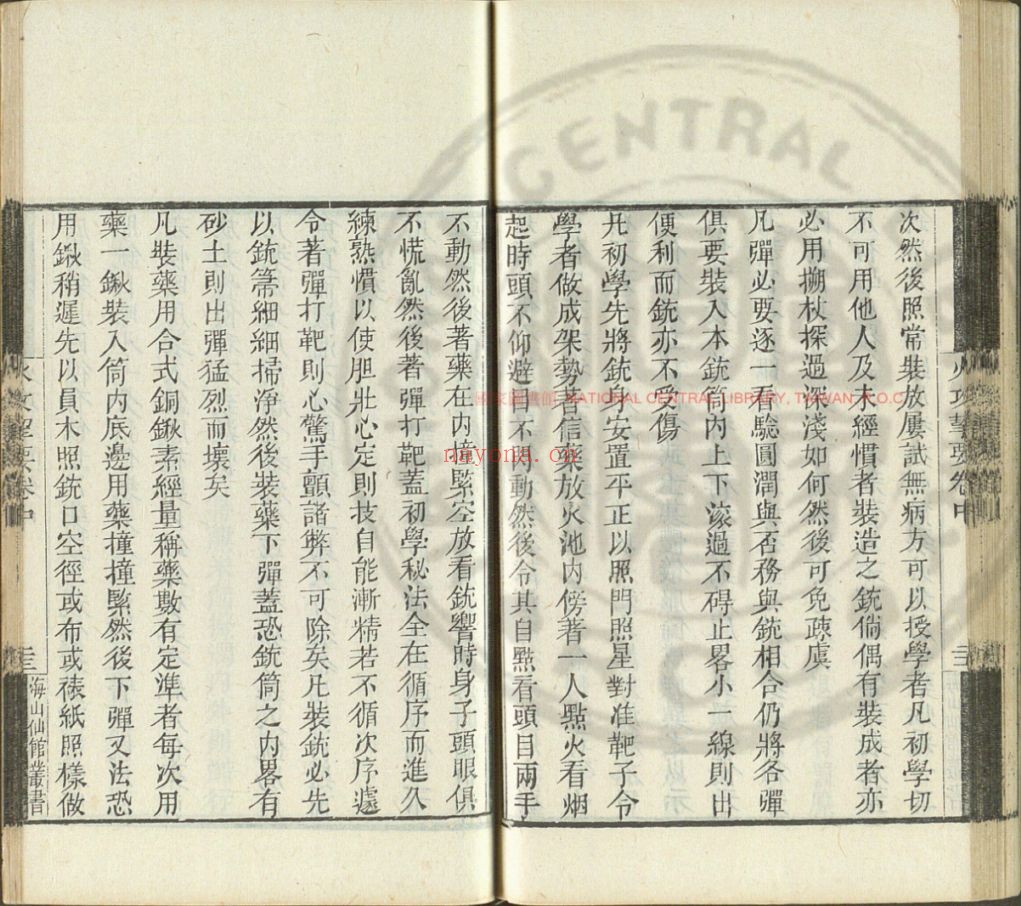 次然後照常裝放屢試無病方可以授學者凡初學切
不可用他人及未經慣者裝造之銃倘偶有裝成者亦
必用搠杖探過深淺如何然後可免疎虞
凡彈必要逐一看驗圓潤與否務與銃相合仍將各彈
俱要裝入本銃筒內上下滾過不碍止畧小一線則出
便利而銃亦不受傷
凡初學先將銃身安置平正以照門照星對准靶子令
學者做成架勢著信藥放火池內傍著一人點火看烟
起時頭不仰避目不閃動然後令其自點看頭目兩手
不動然後著藥在內撞緊空放看銃響時身子頭眼俱
不慌亂然後著彈打靶蓋初學秘法全在循序而進久
練熟慣以使胆壯心定則技自能漸精若不循次序遽
令著彈打靶則心驚手顫諸弊不可除矣凡裝銃必先
以銃箒細細掃净然後裝藥下彈蓋恐銃筒之內畧有
砂土則出彈猛烈而壞矣
凡裝藥用合式銅鍬素經量稱藥數有定準者每次用
藥一鍬裝入筒內底邊用藥撞撞緊然後下彈又法恐
用鍬稍遲先以員木照銃口空徑或布或裱紙照樣做
火攻挈要卷中
海山仙館叢書
CENTRAL
國家圖書館 NATIONAL CENTRAL LIBRARY, TAIWAN, R.O.C
nayona.cn